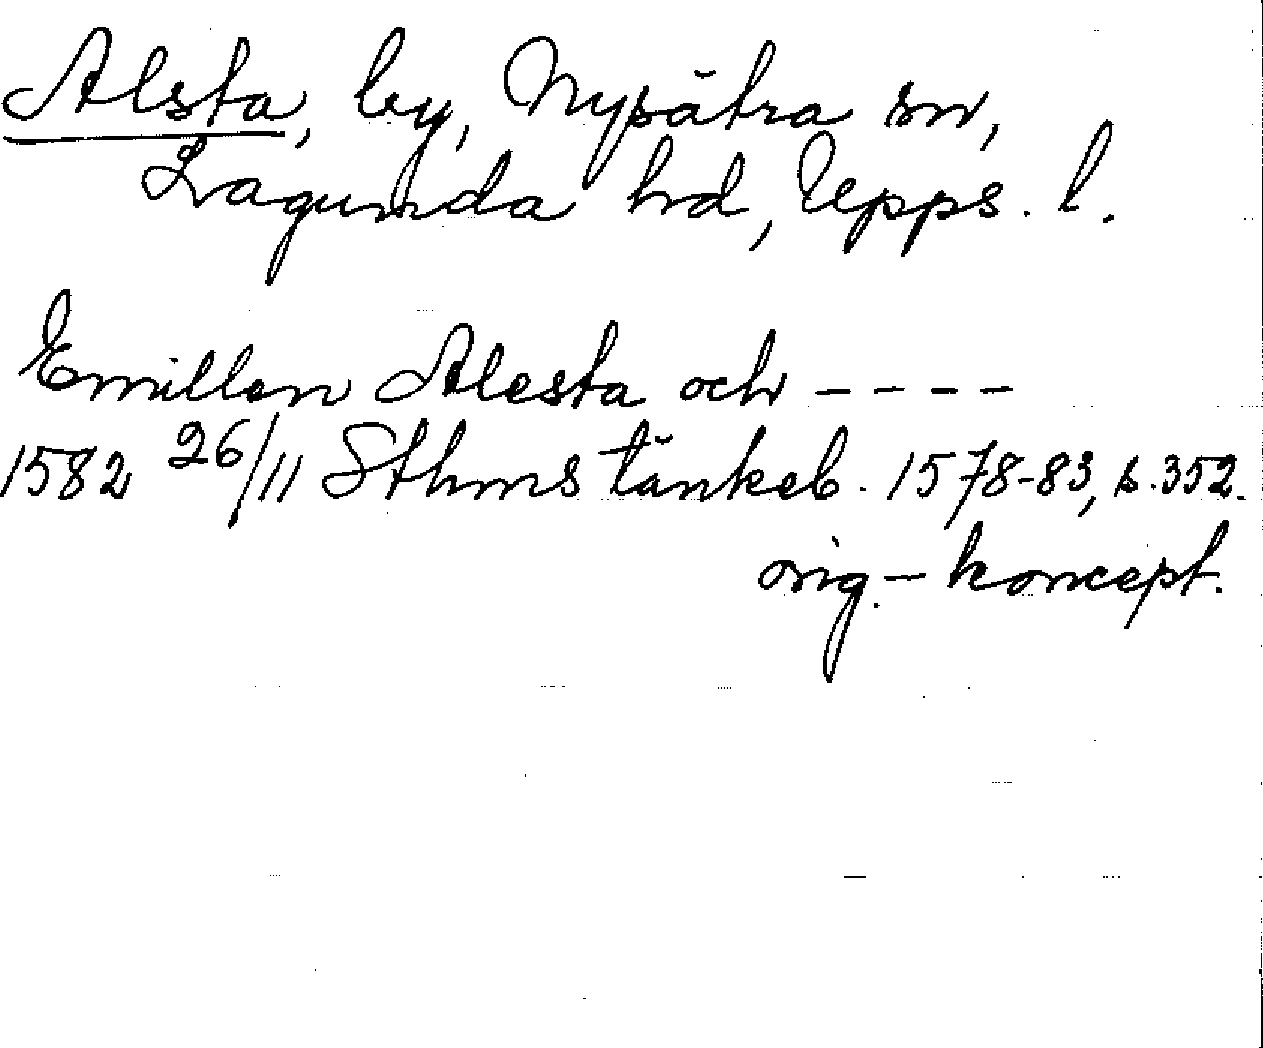 Alsta, by, Nysätra sn,
Lagunda hd, Upps. l.
Emillan Alesta och ----
1582 26/11 Sthms tänkeb. 1578-83, s. 352.
orig.-koncept.